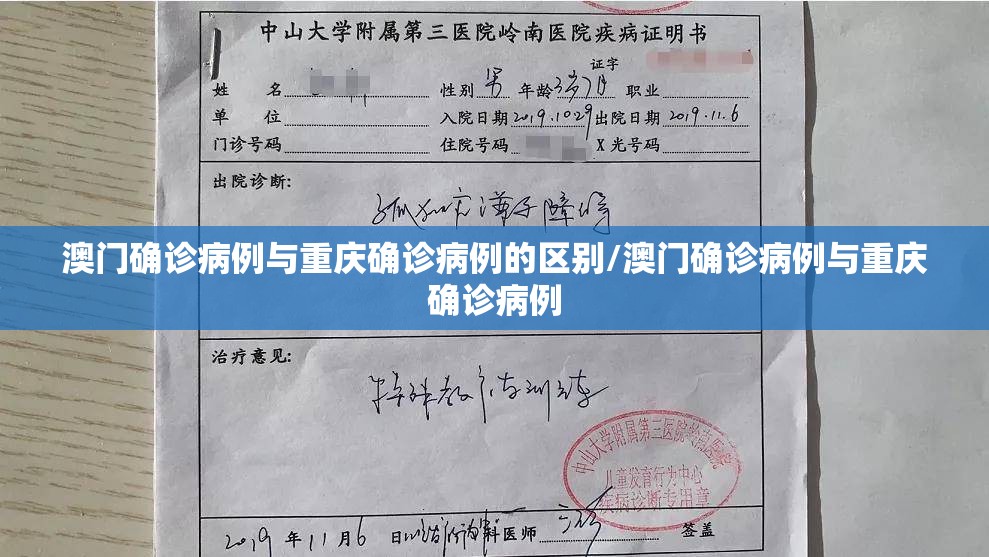 中山大学附属第三医院岭南医院疾病证明书
证字
姓 名 性别 男 年龄 3岁7月 职业
单 位 入院日期 2019.10.29 出院日期 2019.11.6
门诊号码 住院号码 X光号码
出院诊断:
孤独症谱系障碍
澳门确诊病例与重庆确诊病例的区别/澳门确诊病例与重庆
确诊病例
治疗意见:
特殊教育训练
中山大学附属第三医院岭南医院
儿童发育行为中心
疾病诊断专用章
2019 年 11 月 6 日 科医师 签盖